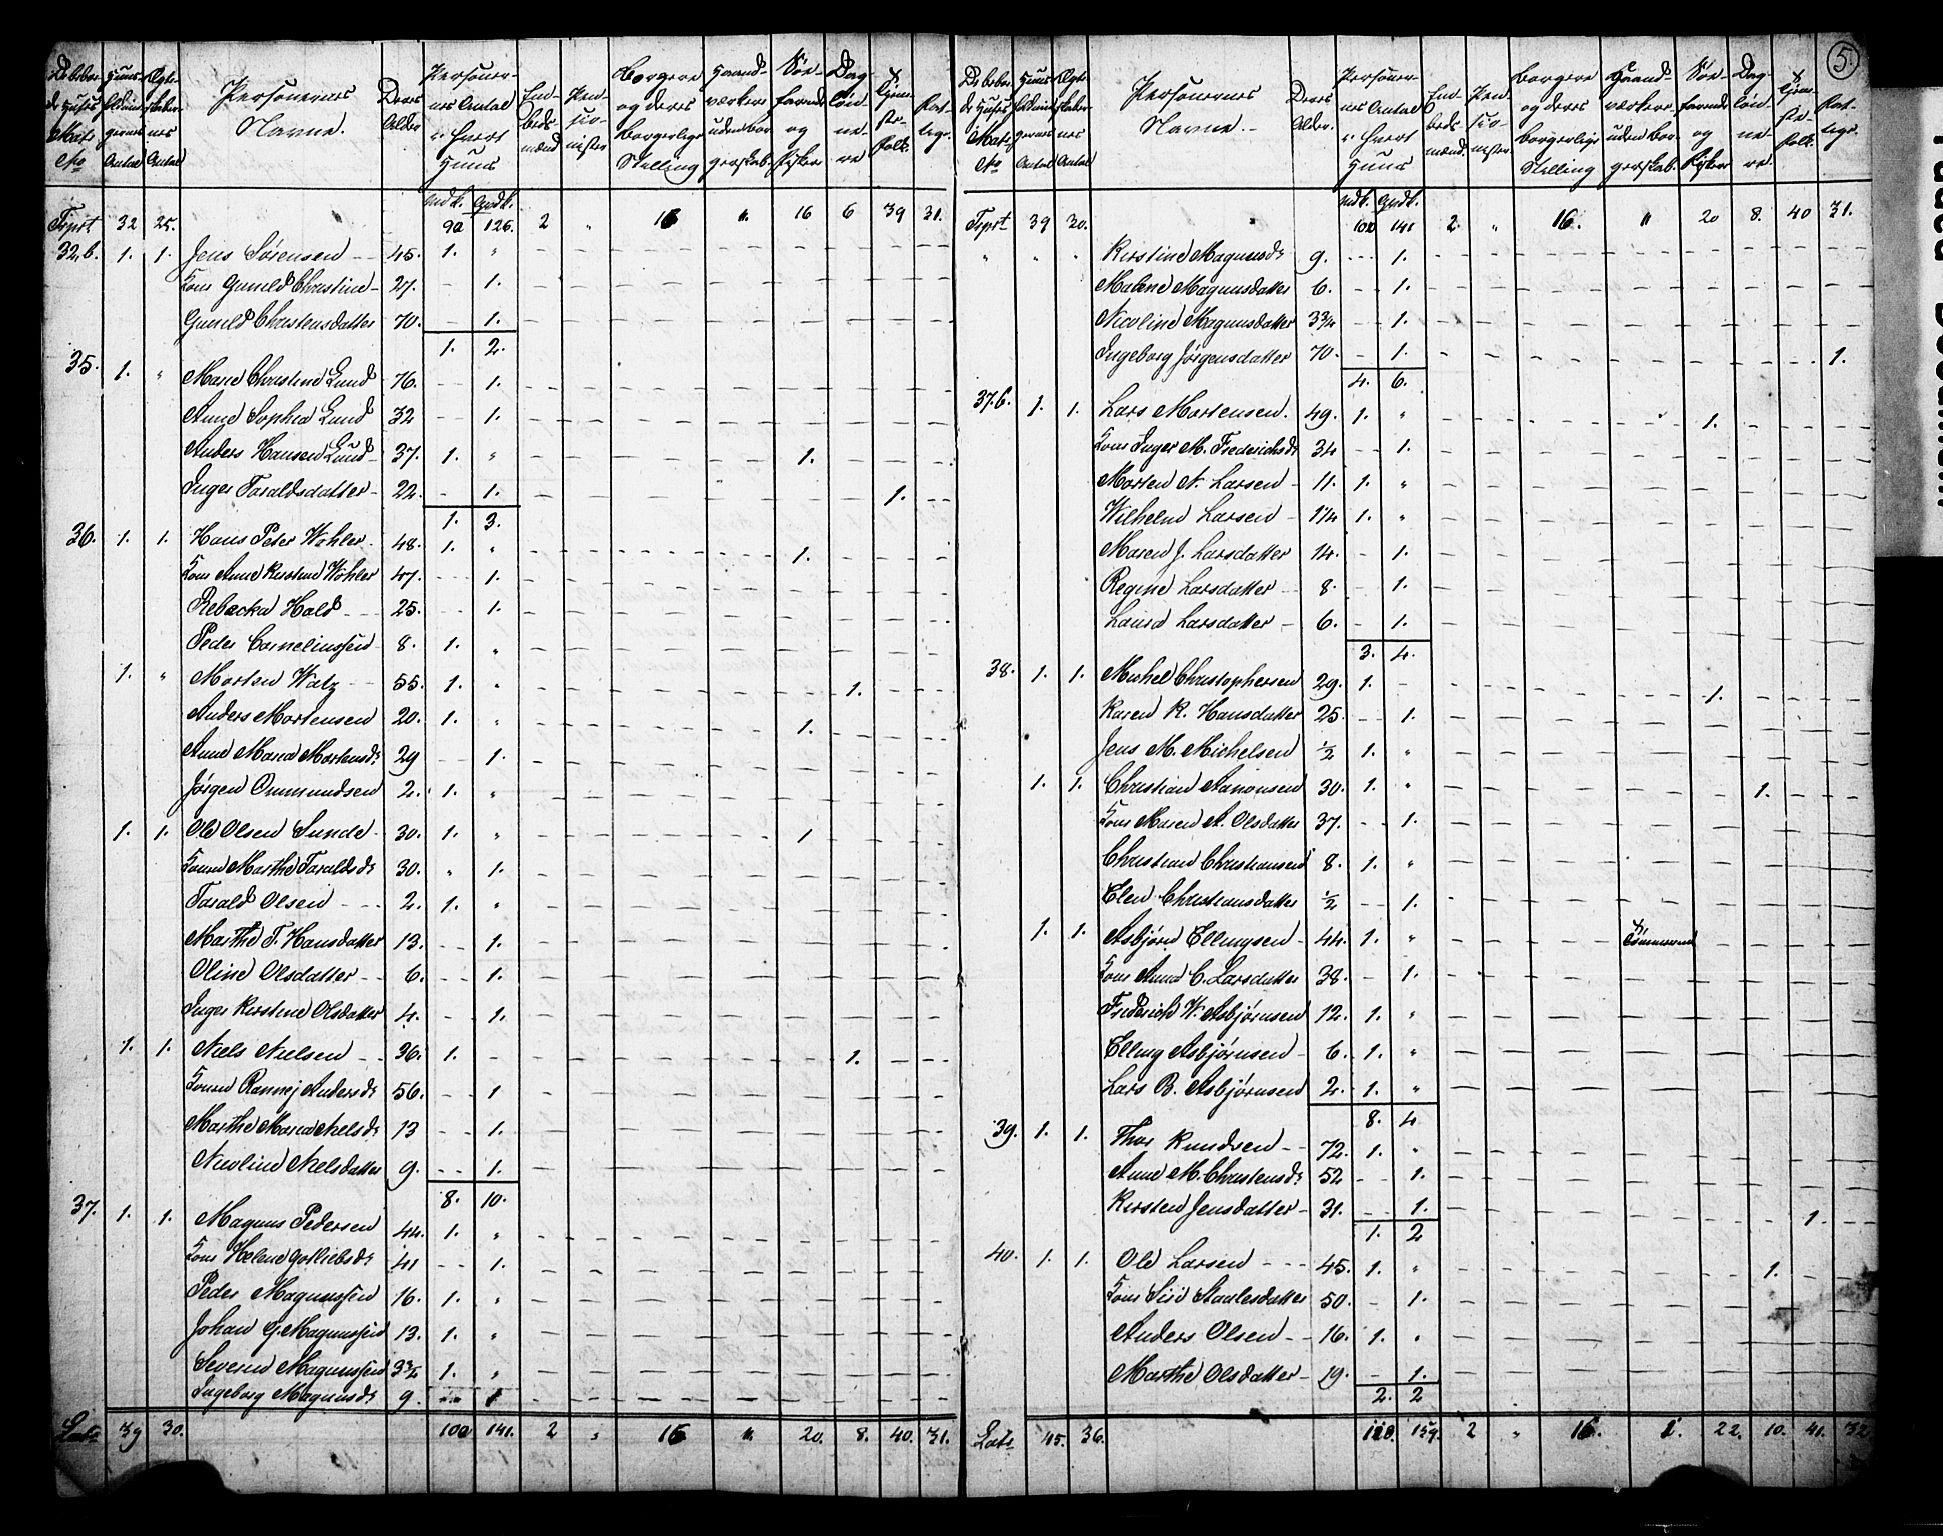 5.
De bebo- de Huses Matr. No | Huus- holdnin- gernes Antal | Ægte- skaber- nes Antal | Personernes Navne. | Deres Alder | Personer- nes Antal i hvert Huus | Em- beds- mænd | Pen- sio- nister | Borgere og deres borgerlige Stilling | Haand- værkere uden bor- gerskab. | Søe- farende og fiskere | Dag- løn- ne- re | Tjene- ste- folk. | Fat- tige.
Mdk. Qvdk.
Trprt 32 25. 90 126. 2 " 16 " 16 6 39 31.
32.b. 1. 1. Jens Sørensen 45. 1. "
Kone Gunild Christine 27. 1.
Gunild Christensdatter 70. 1.
1. 2.
35. 1. " Marie Christine Lund 76. 1.
Anne Sophie Lund 32 1.
Anders Hansen Lund 37. 1. " 1.
Inger Taraldsdatter 22. 1. 1.
1. 3.
36. 1. 1. Hans Peter Wøhler 48. 1. " 1.
Kone Anne Kirstine Wøhler 47. 1.
Rebecka Hald 25. 1.
Peder Corneliussen 8. 1. "
1. " Morten Watz 55. 1. " 1.
Anders Mortensen 20. 1. " 1.
Anne Maria Mortensdr 29 1.
Jørgen Ommundsen 2. 1. "
1. 1. Ole Olsen Sunde 30. 1. " 1
Konen Marthe Taraldsdr 30. " 1.
Tarald Olsen 2. 1. "
Marthe T. Hansdatter 13. 1.
Oline Olsdatter 6. 1.
Inger Kirstine Olsdatter 4. 1.
1. 1. Niels Nielsen 36. 1. 1.
Konen Rannej Andersdr 56. 1
Marthe Maria Nielsdr 13 1.
Nicoline Nielsdatter 9. 1.
8. 10.
37. 1. 1. Magnus Pedersen 44. 1. "
Kone Helene Gotliebsdr 41 1.
Peder Magnussen 16. 1. "
Johan G. Magnussen 13. 1. "
Severin Magnussen 3¾ 1. "
Ingeborg Magnusdr 9. 1
Lats 39 30. 100 141. 2 " 16 " 20. 8. 40. 31.
De bebo- de Huses Matr. No | Huus- holdnin- gernes Antal | Ægte- skaber- nes Antal | Personernes Navne. | Deres Alder. | Personer- nes Antal i hvert Huus | Em- beds- mænd. | Pen- sio- nister. | Borgere og deres borgerlige Stilling | Haand- værkere uden bor- gerskab. | Søe- farende og fiskere | Dag- løn- ne- re. | Tjene- ste- folk. | Fat- tige.
Mdk. Qvdk.
Trprt 39 30. 100 141 2 " 16. " 20 8. 40 31.
" " " Kirstine Magnusdr 9. 1.
Malene Magnusdatter 6. 1.
Nicoline Magnusdatter 3¾ 1.
Ingeborg Jørgensdatter 70. 1. 1.
4. 6.
37.b. 1. 1. Lars Mortensen. 49. 1. " 1.
Kone Inger M. Frederichsdr 34 1.
Morten A. Larsen 11. 1. "
Wilhelm Larsen 1¼ 1. "
Maren J. Larsdatter 14. 1.
Regine Larsdatter 8. 1.
Laura Larsdatter 6. 1.
3. 4.
38. 1. 1. Michel Christophersen 29. 1. 1.
Karen K. Hansdatter 25. 1.
Jens M. Michelsen ½ 1. "
1. 1. Christian Aanonsen 30. 1. " 1.
Kone Maren A. Olsdatter 37. 1.
Christian Christiansen 8. 1. "
Elen Christiansdatter ½ 1.
1. 1. Asbjørn Ellingsen 44. 1. " Tømmermd
Kone Anna C. Larsdatter 38. 1.
Frederich W. Asbjørnsen 12. 1. "
Elling Asbjørnsen 6. 1. "
Lars B. Asbjørnsen 2. 1. "
8. 4
39. 1. 1. Thor Knudsen 72. 1. "
Anne M. Christensdr 52 1.
Kirsten Jensdatter 31. 1. 1.
1. 2
40. 1. 1. Ole Larsen 45. 1. " 1.
Kone Siri Staalesdatter 50. 1.
Anders Olsen 16. 1. "
Marthe Olsdatter 19. 1.
2. 2
Lats 45. 36. 118. 159. 2 " 16. 1. 22. 10. 41. 32